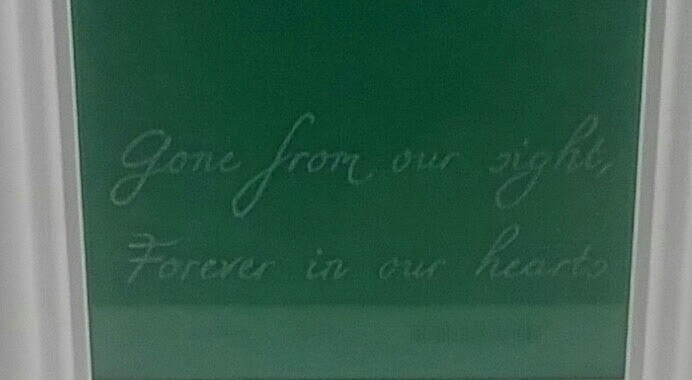 Gone from our sight,
Forever in our hearts